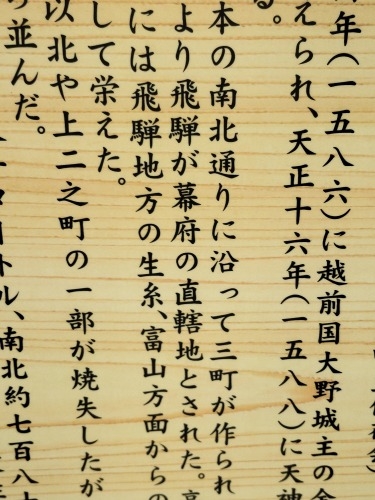 年(一五八六)に越前国大野城主の金
えられ、天正十六年(一五八八)に天神
る。
本の南北通りに沿って三町が作られ
より飛騨が幕府の直轄地とされた。高
には飛騨地方の生糸、富山方面からの
して栄えた。
以北や上二之町の一部が焼失したが
り並んだ。
メートル、南北約七百八十